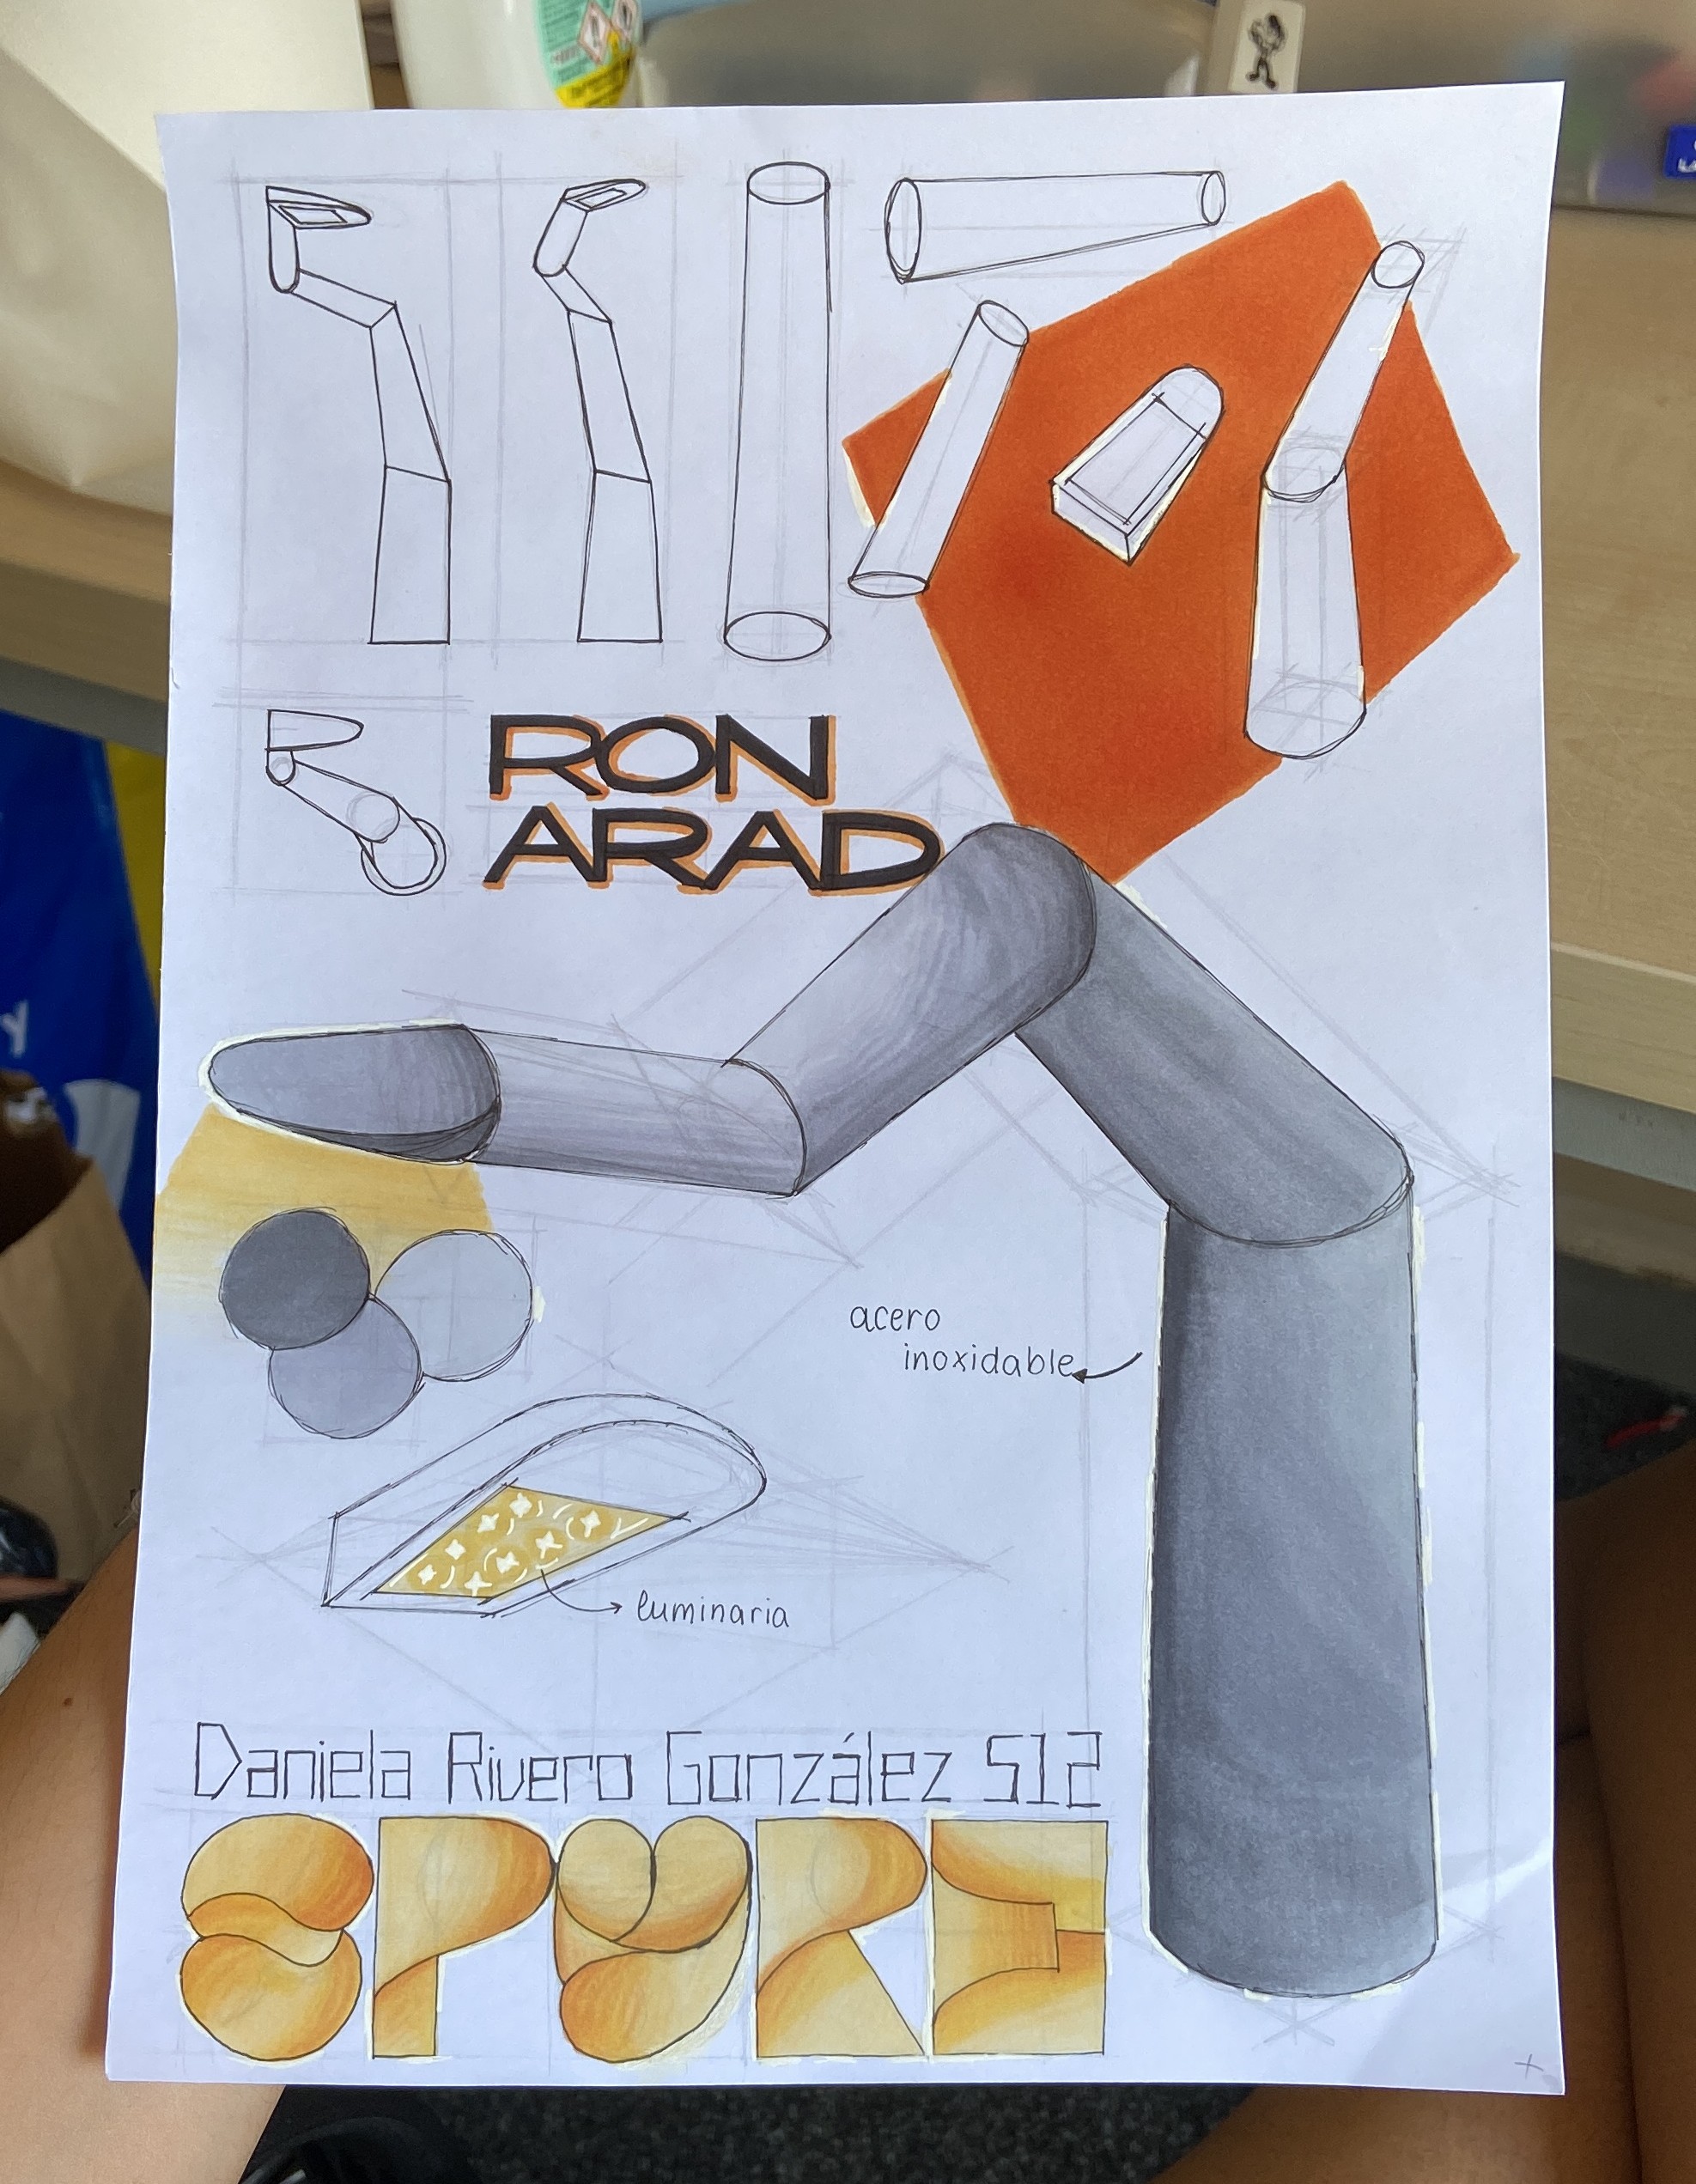 RON
ARAD
acero
inoxidable
luminaria
Daniela Rivero González S12
SPYRE